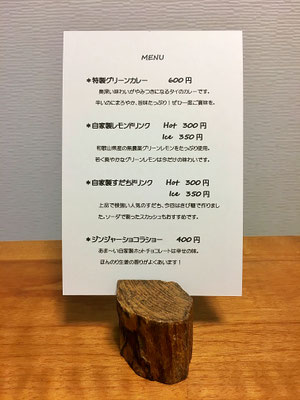 MENU
*特製グリーンカレー 600円
奥深い味わいがやみつきになるタイのカレーです。
辛いのにまろやか、旨味たっぷり！ぜひ一度ご賞味を。
*自家製レモンドリンク Hot 300円
Ice 350円
和歌山県産の無農薬グリーンレモンをたっぷり使用。
若く爽やかなグリーンレモンは今だけの味わいです。
*自家製すだちドリンク Hot 300円
Ice 350円
上品で根強い人気のすだち、今回はきび糖で作りまし
た。ソーダで割ったスカッシュもおすすめです。
*ジンジャーショコラショー 400円
あま～い自家製ホットチョコレートは幸せの味。
ほんのり生姜の香りがよくあいます！